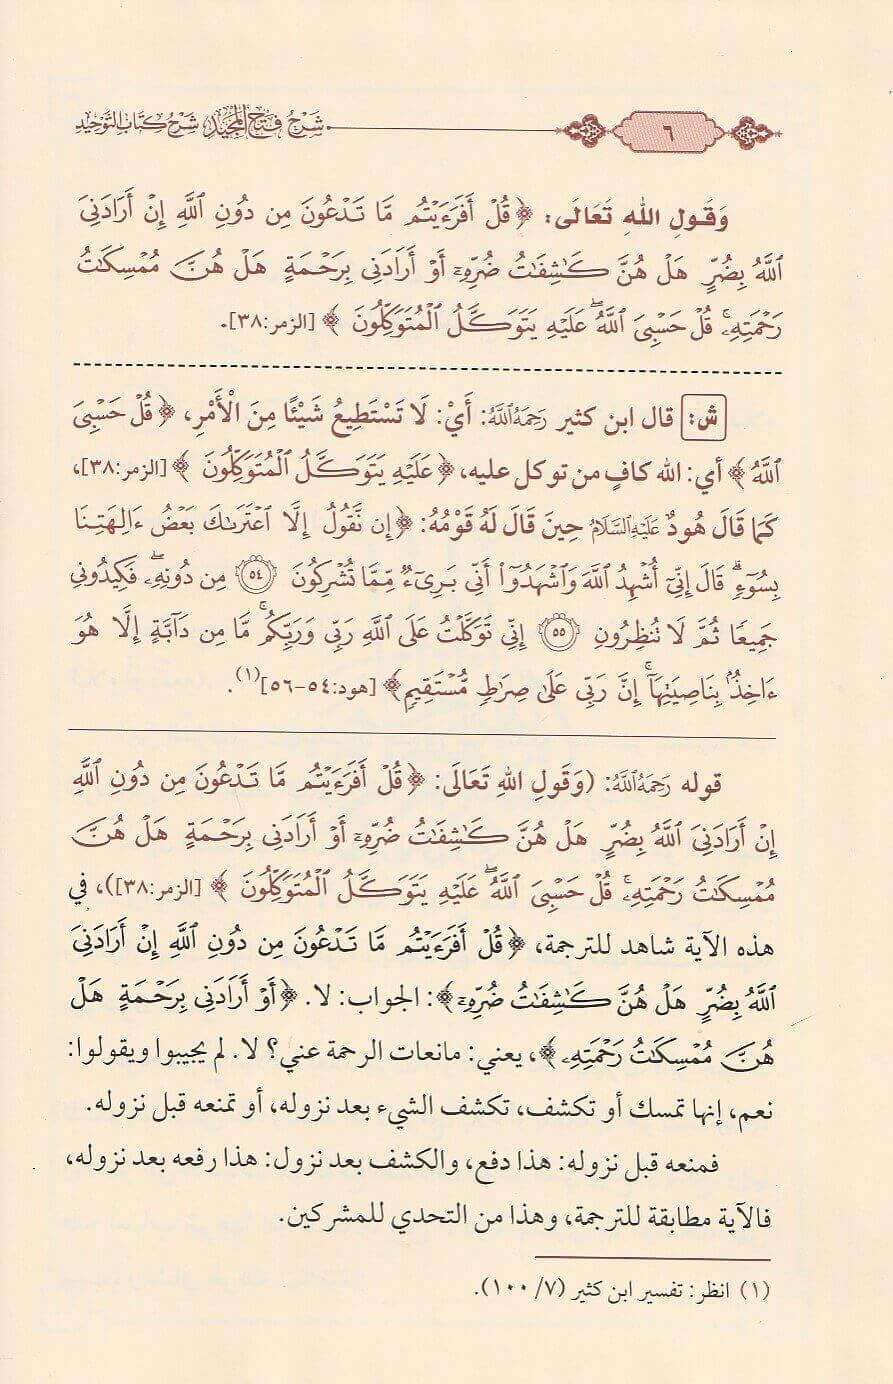 ٦ شَرْحُ فَتْحِ الْمَجِيْدِ شَرْحُ كِتَابِ التَّوْحِيْدِ
وَقَولِ اللهِ تَعَالَى: ﴿ قُلْ أَفَرَءَيْتُم مَّا تَدْعُونَ مِن دُونِ ٱللَّهِ إِنْ أَرَادَنِىَ
ٱللَّهُ بِضُرٍّ هَلْ هُنَّ كَـٰشِفَـٰتُ ضُرِّهِۦٓ أَوْ أَرَادَنِى بِرَحْمَةٍ هَلْ هُنَّ مُمْسِكَـٰتُ
رَحْمَتِهِۦۚ قُلْ حَسْبِىَ ٱللَّهُۖ عَلَيْهِ يَتَوَكَّلُ ٱلْمُتَوَكِّلُونَ ﴾ [الزمر:٣٨].
ش: قال ابن كثير رَحِمَهُ اللَّهُ: أَيْ: لَا تَسْتَطِيعُ شَيْئًا مِنَ الْأَمْرِ، ﴿ قُلْ حَسْبِىَ
ٱللَّهُ ﴾ أي: الله كافٍ من توكل عليه، ﴿ عَلَيْهِ يَتَوَكَّلُ ٱلْمُتَوَكِّلُونَ ﴾ [الزمر:٣٨]،
كَمَا قَالَ هُودٌ عَلَيْهِ السَّلَامُ حِينَ قَالَ لَهُ قَوْمُهُ: ﴿ إِن نَّقُولُ إِلَّا ٱعْتَرَىٰكَ بَعْضُ ءَالِهَتِنَا
بِسُوٓءٍۗ قَالَ إِنِّىٓ أُشْهِدُ ٱللَّهَ وَٱشْهَدُوٓا۟ أَنِّى بَرِىٓءٌ مِّمَّا تُشْرِكُونَ ٥٤ مِن دُونِهِۦۖ فَكِيدُونِى
جَمِيعًا ثُمَّ لَا تُنظِرُونِ ٥٥ إِنِّى تَوَكَّلْتُ عَلَى ٱللَّهِ رَبِّى وَرَبِّكُمۚ مَّا مِن دَآبَّةٍ إِلَّا هُوَ
ءَاخِذٌۢ بِنَاصِيَتِهَآۚ إِنَّ رَبِّى عَلَىٰ صِرَٰطٍ مُّسْتَقِيمٍ ﴾ [هود:٥٤-٥٦](١).
قوله رَحِمَهُ اللَّهُ: (وَقَولِ اللهِ تَعَالَى: ﴿ قُلْ أَفَرَءَيْتُم مَّا تَدْعُونَ مِن دُونِ ٱللَّهِ
إِنْ أَرَادَنِىَ ٱللَّهُ بِضُرٍّ هَلْ هُنَّ كَـٰشِفَـٰتُ ضُرِّهِۦٓ أَوْ أَرَادَنِى بِرَحْمَةٍ هَلْ هُنَّ
مُمْسِكَـٰتُ رَحْمَتِهِۦۚ قُلْ حَسْبِىَ ٱللَّهُۖ عَلَيْهِ يَتَوَكَّلُ ٱلْمُتَوَكِّلُونَ ﴾ [الزمر:٣٨])، في
هذه الآية شاهد للترجمة، ﴿ قُلْ أَفَرَءَيْتُم مَّا تَدْعُونَ مِن دُونِ ٱللَّهِ إِنْ أَرَادَنِىَ
ٱللَّهُ بِضُرٍّ هَلْ هُنَّ كَـٰشِفَـٰتُ ضُرِّهِۦٓ ﴾: الجواب: لا. ﴿ أَوْ أَرَادَنِى بِرَحْمَةٍ هَلْ
هُنَّ مُمْسِكَـٰتُ رَحْمَتِهِۦ ﴾، يعني: مانعات الرحمة عني؟ لا. لم يجيبوا ويقولوا:
نعم، إنها تمسك أو تكشف، تكشف الشيء بعد نزوله، أو تمنعه قبل نزوله.
فمنعه قبل نزوله: هذا دفع، والكشف بعد نزول: هذا رفعه بعد نزوله،
فالآية مطابقة للترجمة، وهذا من التحدي للمشركين.
(١) انظر: تفسير ابن كثير (٧/ ١٠٠).